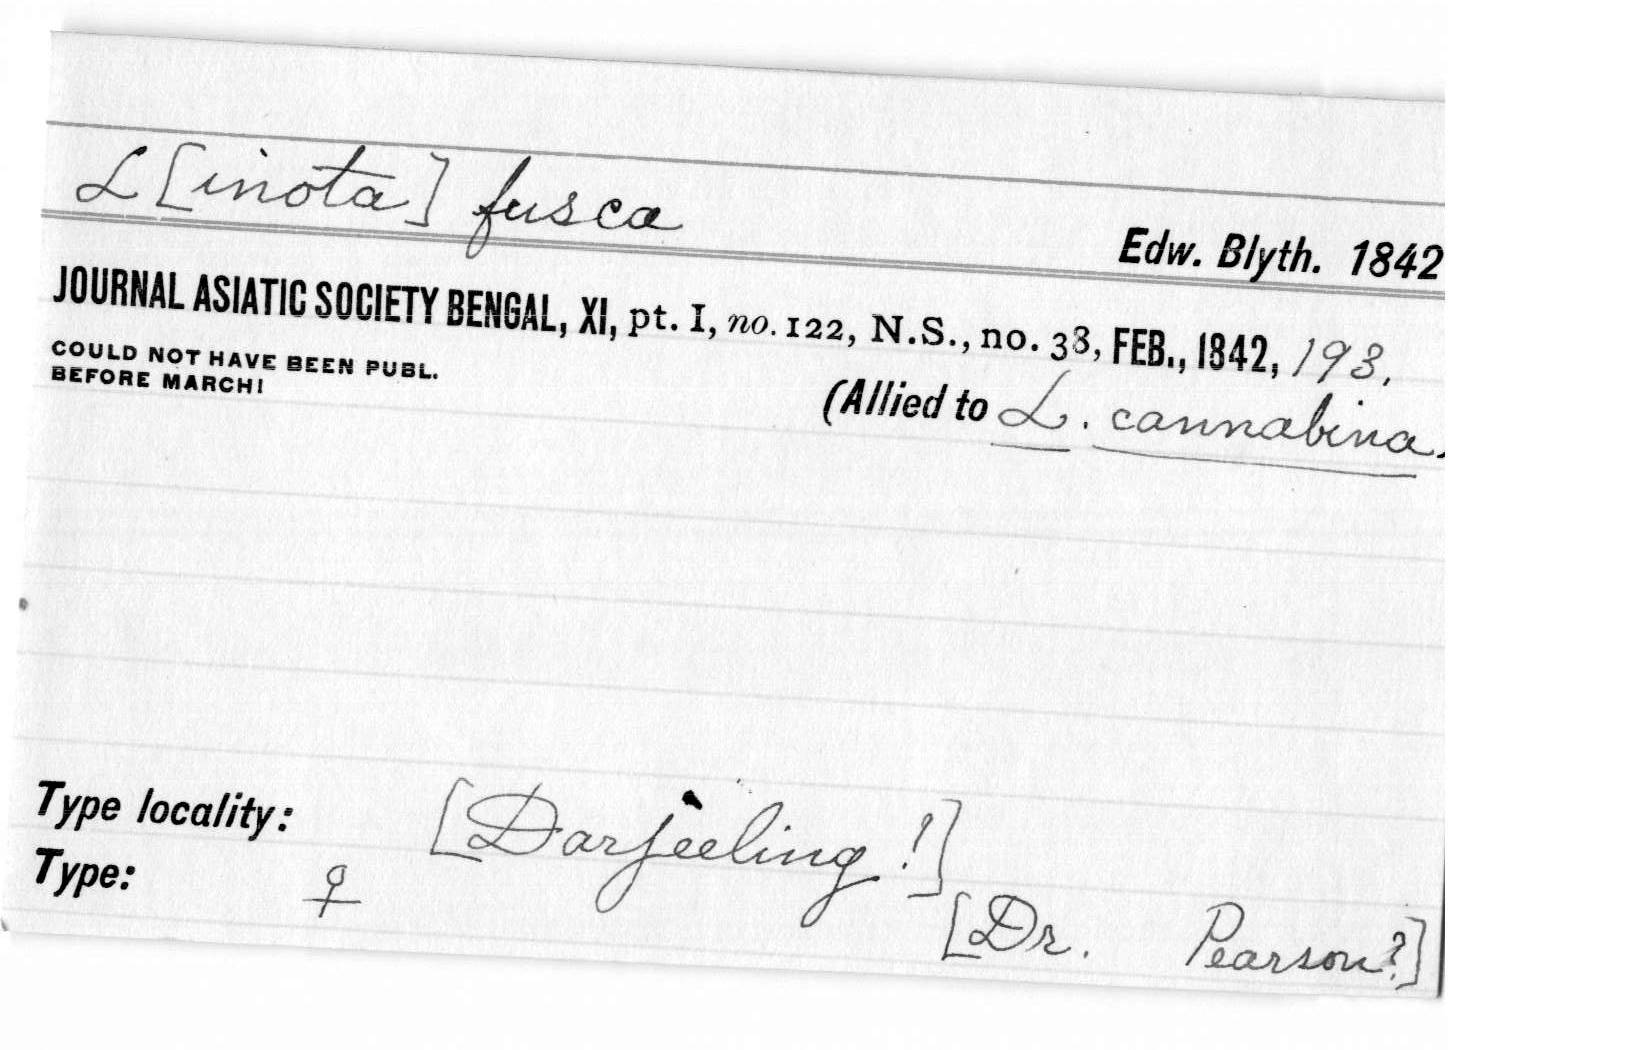 L[inota] fusca
Edw. Blyth. 1842
JOURNAL ASIATIC SOCIETY BENGAL, XI, pt. I, no. 122, N.S., no. 38, FEB., 1842, 193.
COULD NOT HAVE BEEN PUBL.
BEFORE MARCH!
(Allied to L. cannabina.
Type locality: [Darjeeling !]
Type: ♀ [Dr. Pearson?]